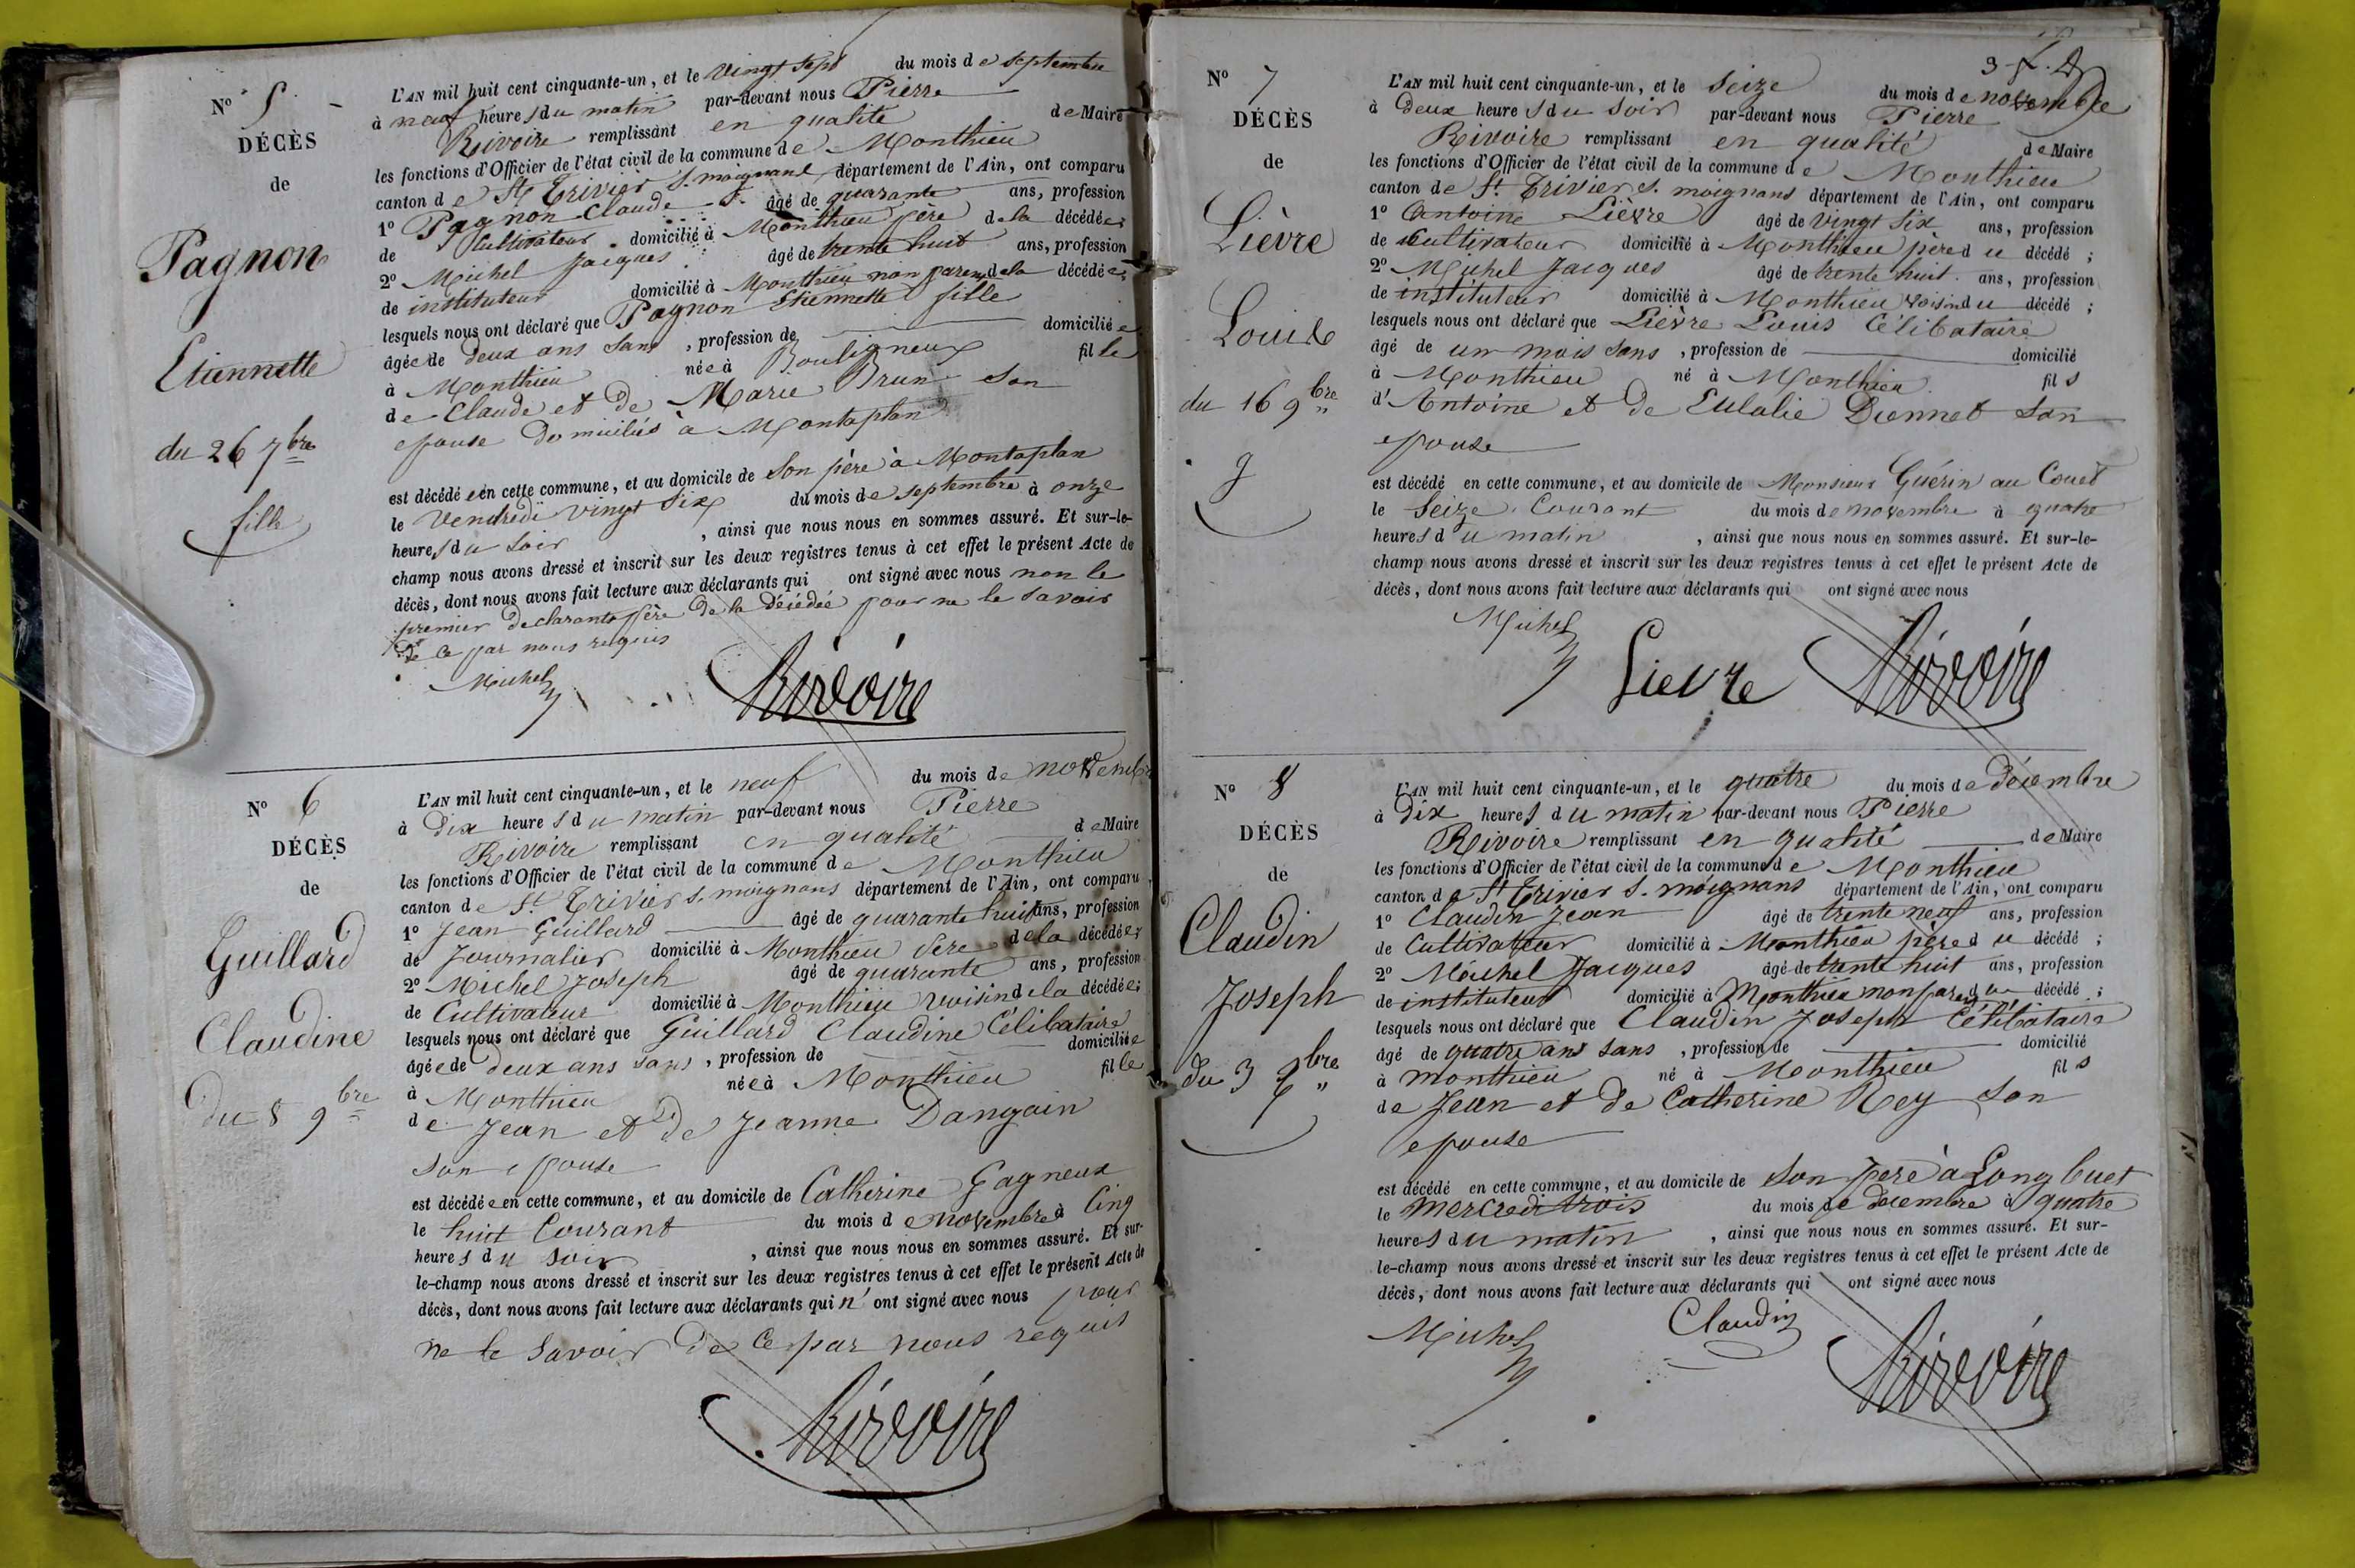 N° 5
DÉCÈS
de
Pagnon
Etiennette
du 26 7bre
fille
L'AN mil huit cent cinquante-un, et le vingt sept du mois de septembre
à neuf heures du matin par-devant nous Pierre
Rivoire remplissant en qualité de Maire
les fonctions d'Officier de l'état civil de la commune de Monthieu
canton de St Trivier s. moignans département de l'Ain, ont comparu
1° Pagnon Claude âgé de quarante ans, profession
de Cultivateur domicilié à Monthieu père de la décédée;
2° Michel Jacques âgé de trente huit ans, profession
de instituteur domicilié à Monthieu non parent de la décédée;
lesquels nous ont déclaré que Pagnon Etiennette fille
âgée de deux ans sans, profession de domiciliée
à Monthieu née à Bouligneux fille
de Claude et de Marie Brun son
epouse domiciliés à Montaplan
est décédée en cette commune, et au domicile de son père à Montaplan
le Vendredi vingt six du mois de septembre à onze
heures du soir, ainsi que nous nous en sommes assuré. Et sur-le-
champ nous avons dressé et inscrit sur les deux registres tenus à cet effet le présent Acte de
décès, dont nous avons fait lecture aux déclarants qui ont signé avec nous non le
premier declarant père de la décédée pour ne le savoir
de ce par nous requis
Michel Rivoire
N° 6
DÉCÈS
de
Guillard
Claudine
du 8 9bre
L'AN mil huit cent cinquante-un, et le neuf du mois de novembre
à dix heures du matin par-devant nous Pierre
Rivoire remplissant en qualité de Maire
les fonctions d'Officier de l'état civil de la commune de Monthieu
canton de St Trivier s. moignans département de l'Ain, ont comparu
1° Jean Guillard âgé de quarante huit ans, profession
de Journalier domicilié à Monthieu père de la décédée;
2° Michel Joseph âgé de quarante ans, profession
de Cultivateur domicilié à Monthieu voisin de la décédée;
lesquels nous ont déclaré que Guillard Claudine Célibataire
âgée de deux ans sans, profession de domiciliée
à Monthieu née à Monthieu fille
de Jean et de Jeanne Dangain
son epouse
est décédée en cette commune, et au domicile de Catherine Gagneux
le huit Courant du mois de novembre à Cinq
heures du soir, ainsi que nous nous en sommes assuré. Et sur-
le-champ nous avons dressé et inscrit sur les deux registres tenus à cet effet le présent Acte de
décès, dont nous avons fait lecture aux déclarants qui n'ont signé avec nous pour
ne le savoir de ce par nous requis
Rivoire
N° 7
DÉCÈS
de
Lièvre
Louis
du 16 9bre
L'AN mil huit cent cinquante-un, et le seize du mois de novembre
à deux heures du soir par-devant nous Pierre
Rivoire remplissant en qualité de Maire
les fonctions d'Officier de l'état civil de la commune de Monthieu
canton de St Trivier s. moignans département de l'Ain, ont comparu
1° Antoine Lièvre âgé de vingt six ans, profession
de Cultivateur domicilié à Monthieu père du décédé;
2° Michel Jacques âgé de trente huit ans, profession
de instituteur domicilié à Monthieu voisin du décédé;
lesquels nous ont déclaré que Lièvre Louis Célibataire
âgé de un mois sans, profession de domicilié
à Monthieu né à Monthieu fils
d'Antoine et de Eulalie Diennet son
epouse
est décédé en cette commune, et au domicile de Monsieur Guérin au Couet
le Seize Courant du mois de novembre à quatre
heures du matin, ainsi que nous nous en sommes assuré. Et sur-le-
champ nous avons dressé et inscrit sur les deux registres tenus à cet effet le présent Acte de
décès, dont nous avons fait lecture aux déclarants qui ont signé avec nous
Michel Lievre Rivoire
N° 8
DÉCÈS
de
Claudin
Joseph
du 3 Xbre
L'AN mil huit cent cinquante-un, et le quatre du mois de décembre
à dix heures du matin par-devant nous Pierre
Rivoire remplissant en qualité de Maire
les fonctions d'Officier de l'état civil de la commune de Monthieu
canton de St Trivier s. moignans département de l'Ain, ont comparu
1° Claudin Jean âgé de trente neuf ans, profession
de Cultivateur domicilié à Monthieu père du décédé;
2° Michel Jacques âgé de trente huit ans, profession
de instituteur domicilié à Monthieu non parent du décédé;
lesquels nous ont déclaré que Claudin Joseph Célibataire
âgé de quatre ans sans, profession de domicilié
à monthieu né à Monthieu fils
de Jean et de Catherine Rey son
epouse
est décédé en cette commune, et au domicile de son pere à Long buet
le mercredi trois du mois de decembre à quatre
heures du matin, ainsi que nous nous en sommes assuré. Et sur-
le-champ nous avons dressé et inscrit sur les deux registres tenus à cet effet le présent Acte de
décès, dont nous avons fait lecture aux déclarants qui ont signé avec nous
Michel Claudin Rivoire